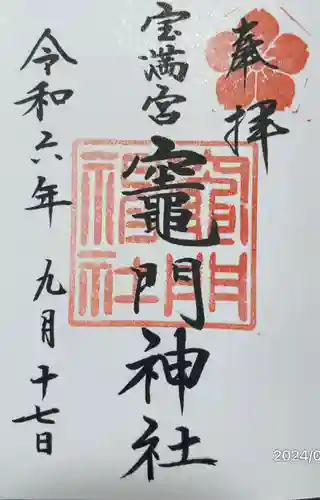 奉拝
宝満宮
竈門神社
令和六年 九月十七日
竈門神社
2024/0